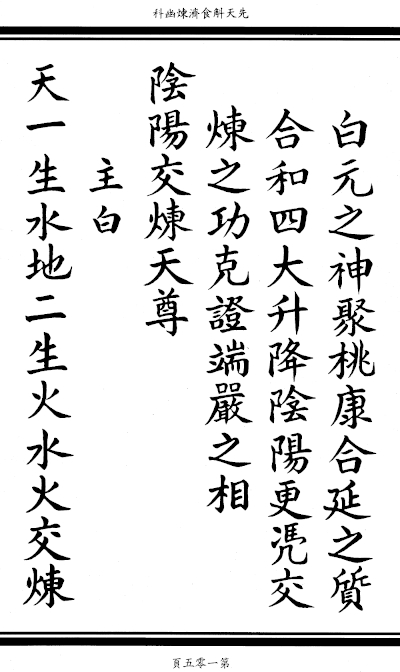 先天斛食濟煉幽科
白元之神聚桃康合延之質
合和四大升降陰陽更凴交
煉之功克證端嚴之相
陰陽交煉天尊
主白
天一生水地二生火水火交煉
第一零五頁